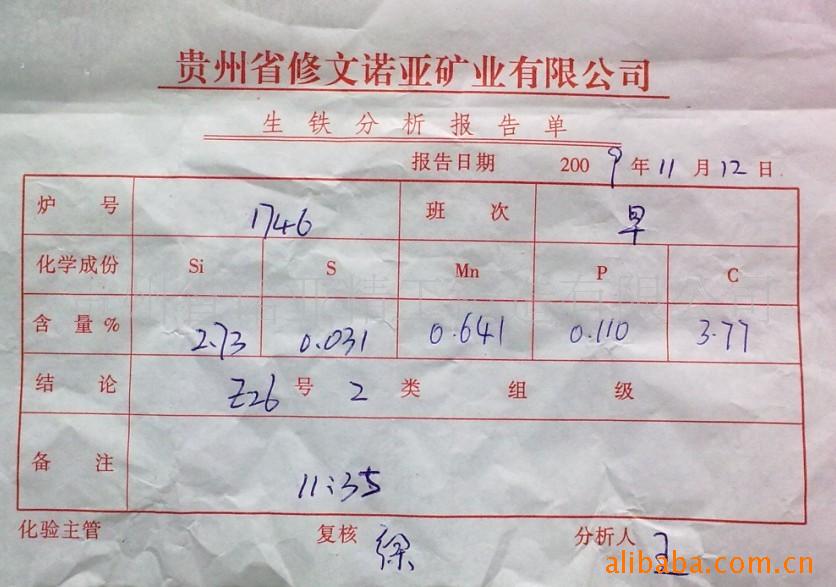 贵州省修文诺亚矿业有限公司
生铁分析报告单
报告日期 2009年11月12日
炉号 1746 班次 早
化学成份 Si S Mn P C
含量% 2.73 0.031 0.641 0.110 3.77
结论 Z26号 2类 组 级
备注 11:35
化验主管 复核 徐 分析人 王
alibaba.com.cn